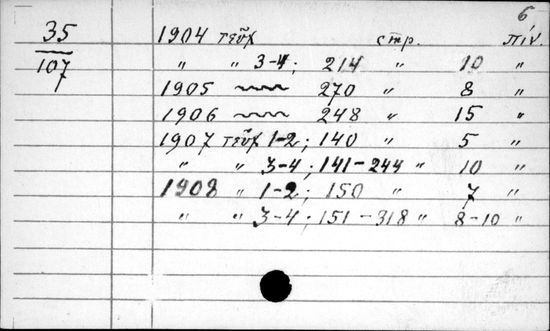 6
35 1904 τεῦχ στρ. πίν.
107 " " 3-4; 214 " 10 "
1905 ~~~ 270 " 8 "
1906 ~~~ 248 " 15 "
1907 τεῦχ 1-2; 140 " 5 "
" " 3-4; 141-244 " 10 "
1908 " 1-2; 150 " 7 "
" " 3-4; 151-318 " 8-10 "